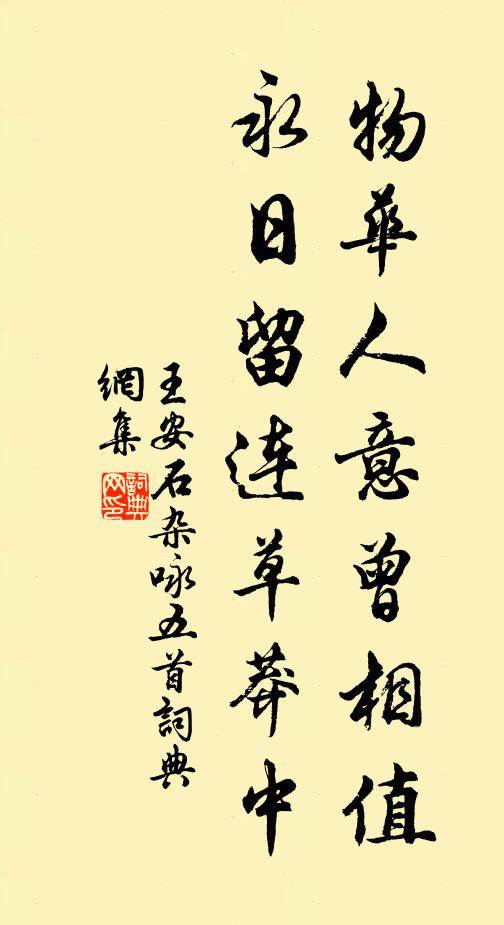 物華人意曾相值
永日留连草莽中
王安石杂咏五首詞典
網集
詞典
网印